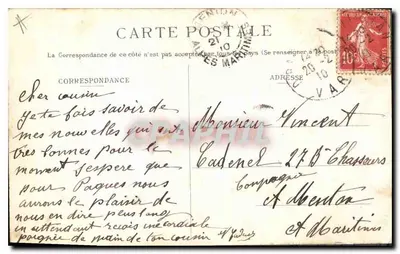 CARTE POSTALE
La Correspondance de ce côté n'est pas acceptée
pays (Se renseigner à la poste)
CORRESPONDANCE
ADRESSE
MENTON
21
10
ALPES MARITIMES
20 -2
10
VAR
10c
Cher cousin
Je te fais savoir de
mes nouvelles qui sont
tres bonnes pour le
moment J'espère que
pour Paques nous
aurons le plaisir de
nous en dire plus long
en attendant recois une cordiale
poignée de main de ton cousin
Monsieur Vincent
Cadenel 27 B Chasseurs
Compagnie
A Menton
A Maritimes